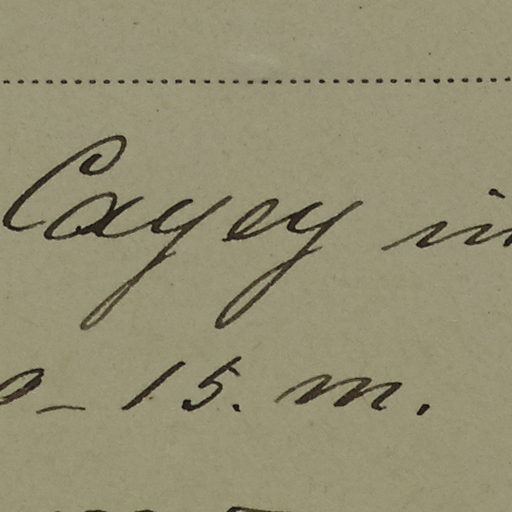 Cayey in
0 - 15. m.